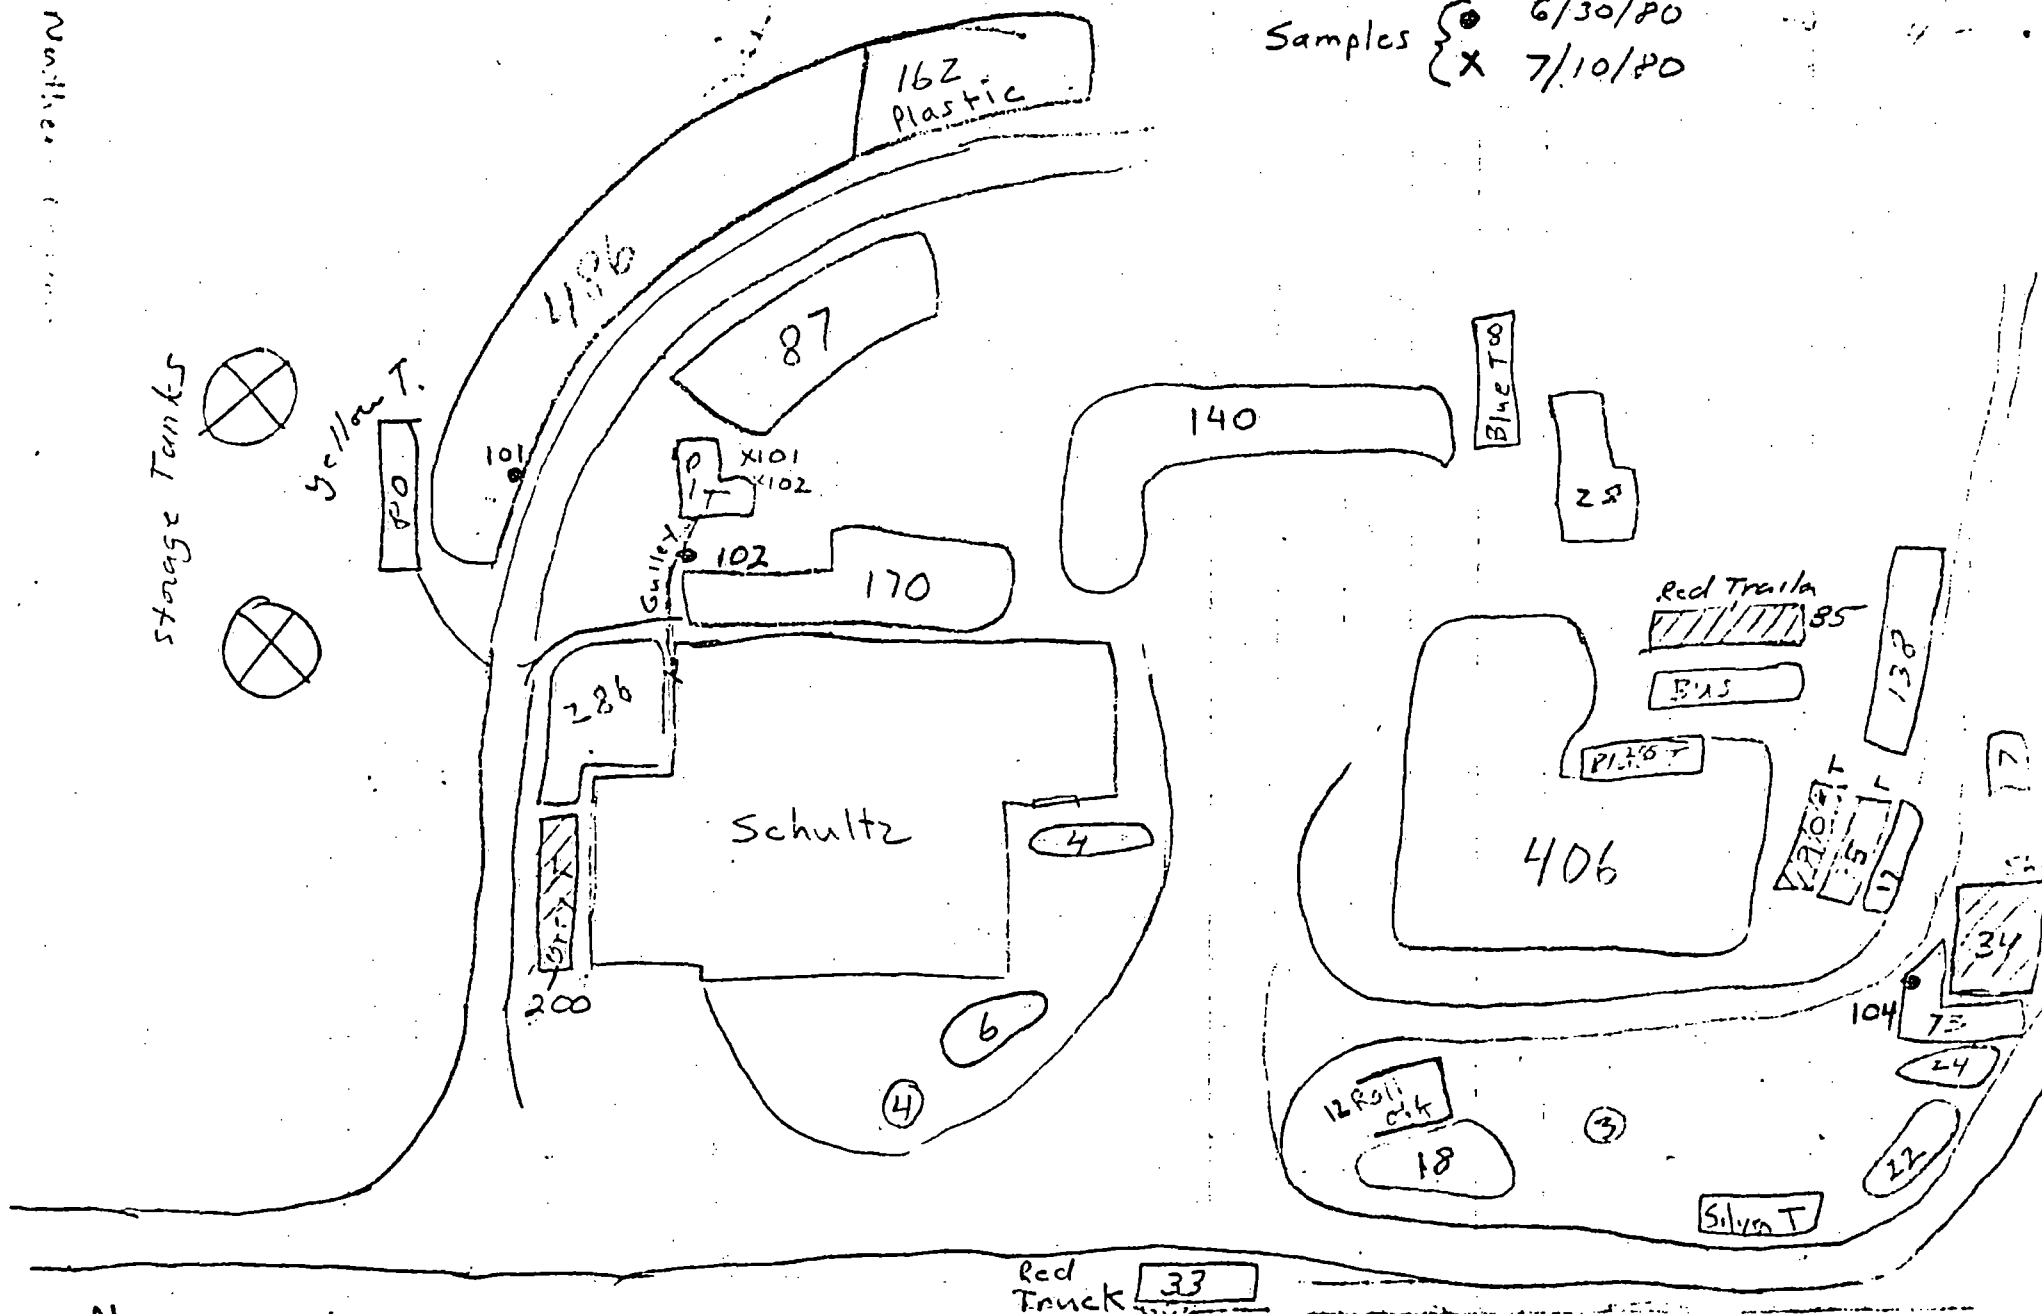 Samples { • 6/30/80
X 7/10/80
162
Plastic
486
87
Storage Tanks
Yellow T.
80
101
PIT
X101
X102
Gulley
102
170
140
Blue T 8
25
Red Trailer
85
Bus
138
286
Schultz
4
406
17
34
200
6
4
104
73
24
12 Roll
18
3
22
Silver T
Red
Truck
33